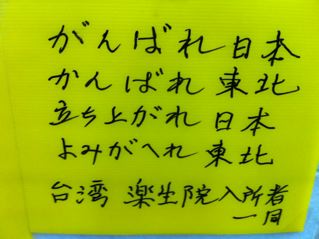 がんばれ日本
かんばれ東北
立ち上がれ日本
よみがへれ東北
台湾 楽生院入所者
一同